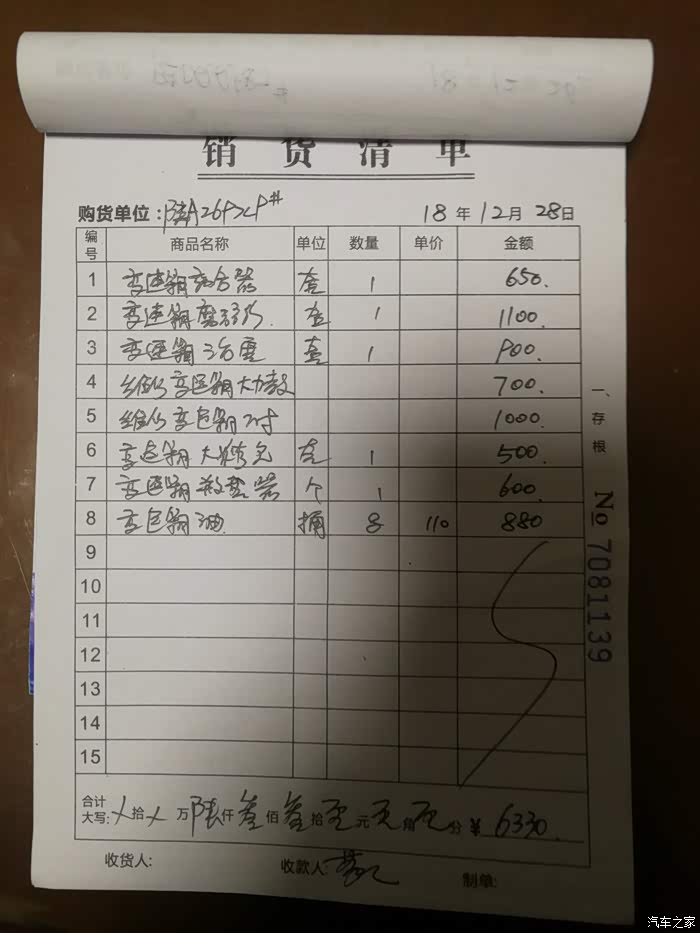 销货清单
购货单位:陕A26P2CP#
18年12月28日
编号 商品名称 单位 数量 单价 金额
1 变速箱离合器 套 1 650.
2 变速箱摩擦片. 套 1 1100.
3 变速箱 套 1 900.
4 维修变速箱大力鼓 700.
5 维修变速箱 1000.
6 变速箱大修包 套 1 500.
7 变速箱散热器 个 1 600.
8 变速箱油 桶 8 110 880
9
10
11
12
13
14
15
合计大写:乂拾乂万陆仟叁佰叁拾零元零角零分¥6330.
收货人: 收款人: 制单:
一、存根
No 7081139
汽车之家